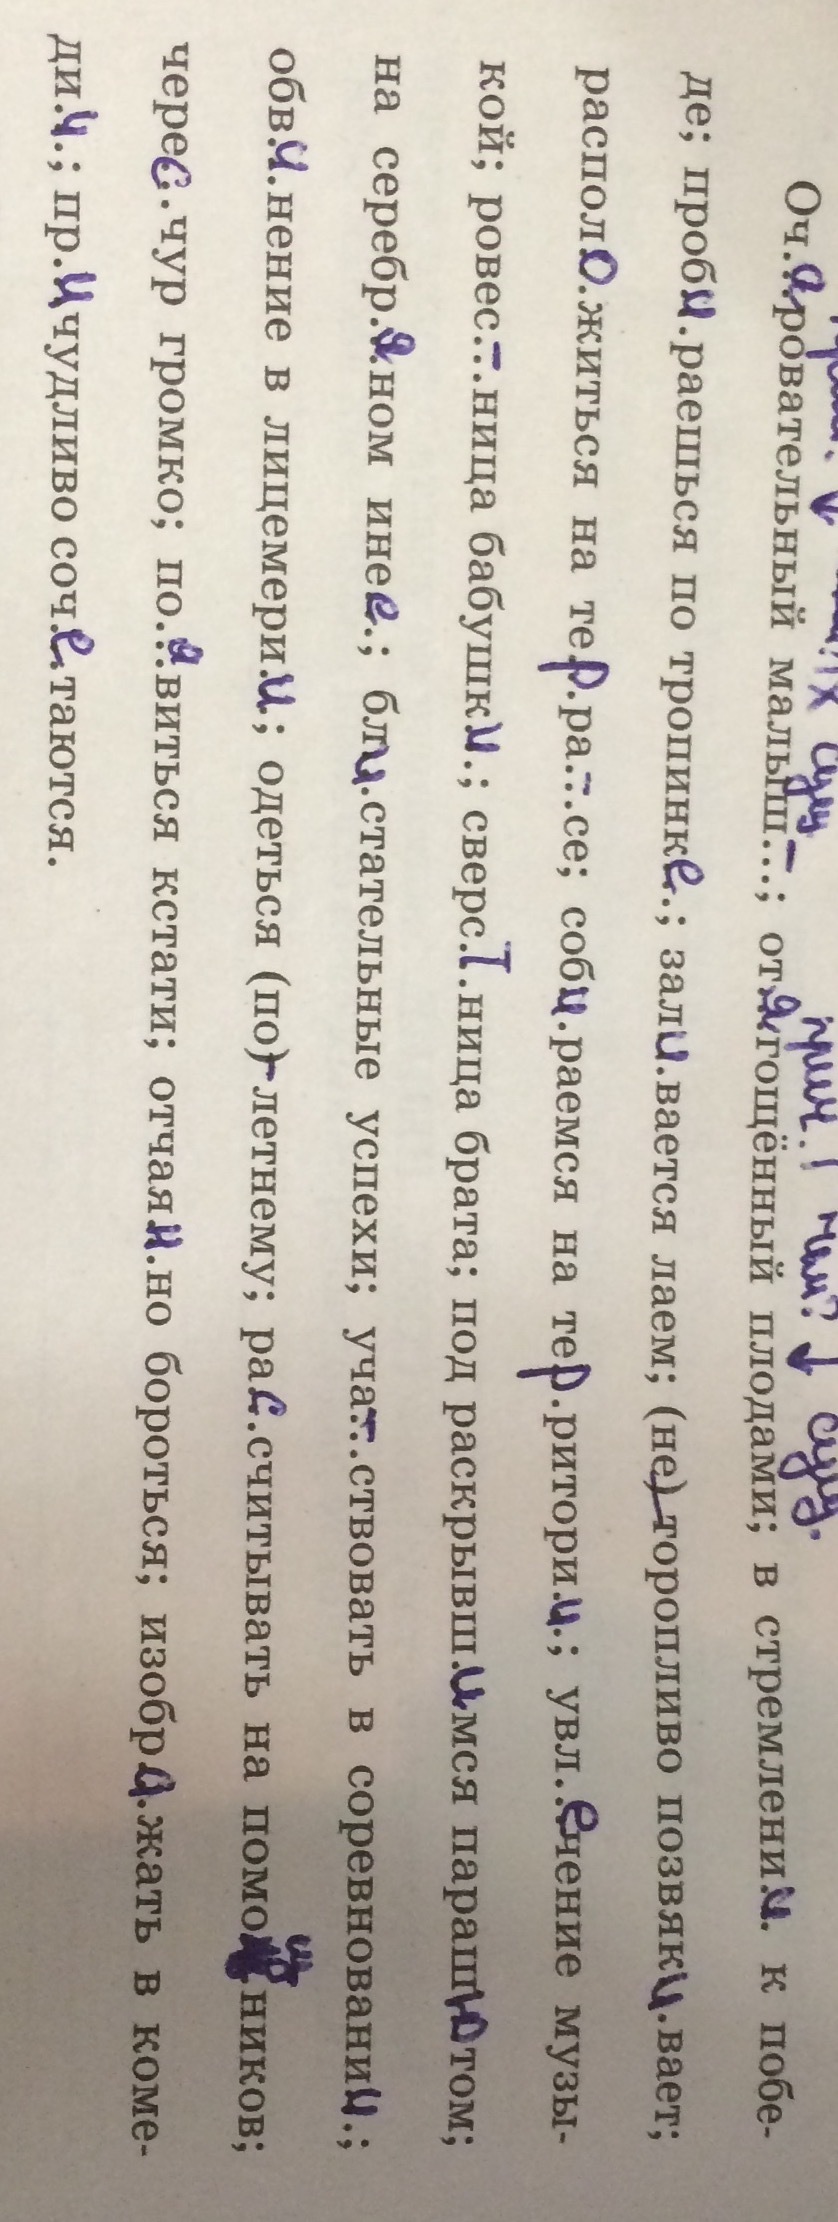 прич. ↓ чем? ↓ сущ.
Оч.а.ровательный малыш...-; от.я.гощённый плодами; в стремлени.и. к побе-
де; проб.и.раешься по тропинк.е.; зал.и.вается лаем; (не) торопливо позвяк.и.вает;
распол.о.житься на те.р.ра.-.се; соб.и.раемся на те.р.ритори.и.; увл.е.чение музы-
кой; ровес.-.ница бабушк.и.; сверс.т.ница брата; под раскрывш.и.мся параш.ю.том;
на серебр.я.ном ине.е.; бл.и.стательные успехи; уча.-.ствовать в соревновани.и.;
обв.и.нение в лицемери.и.; одеться (по)-летнему; ра.с.считывать на помо.щ.ников;
чере.с.чур громко; по.я.виться кстати; отчая.н.но бороться; изобр.а.жать в коме-
ди.и.; пр.и.чудливо соч.е.таются.